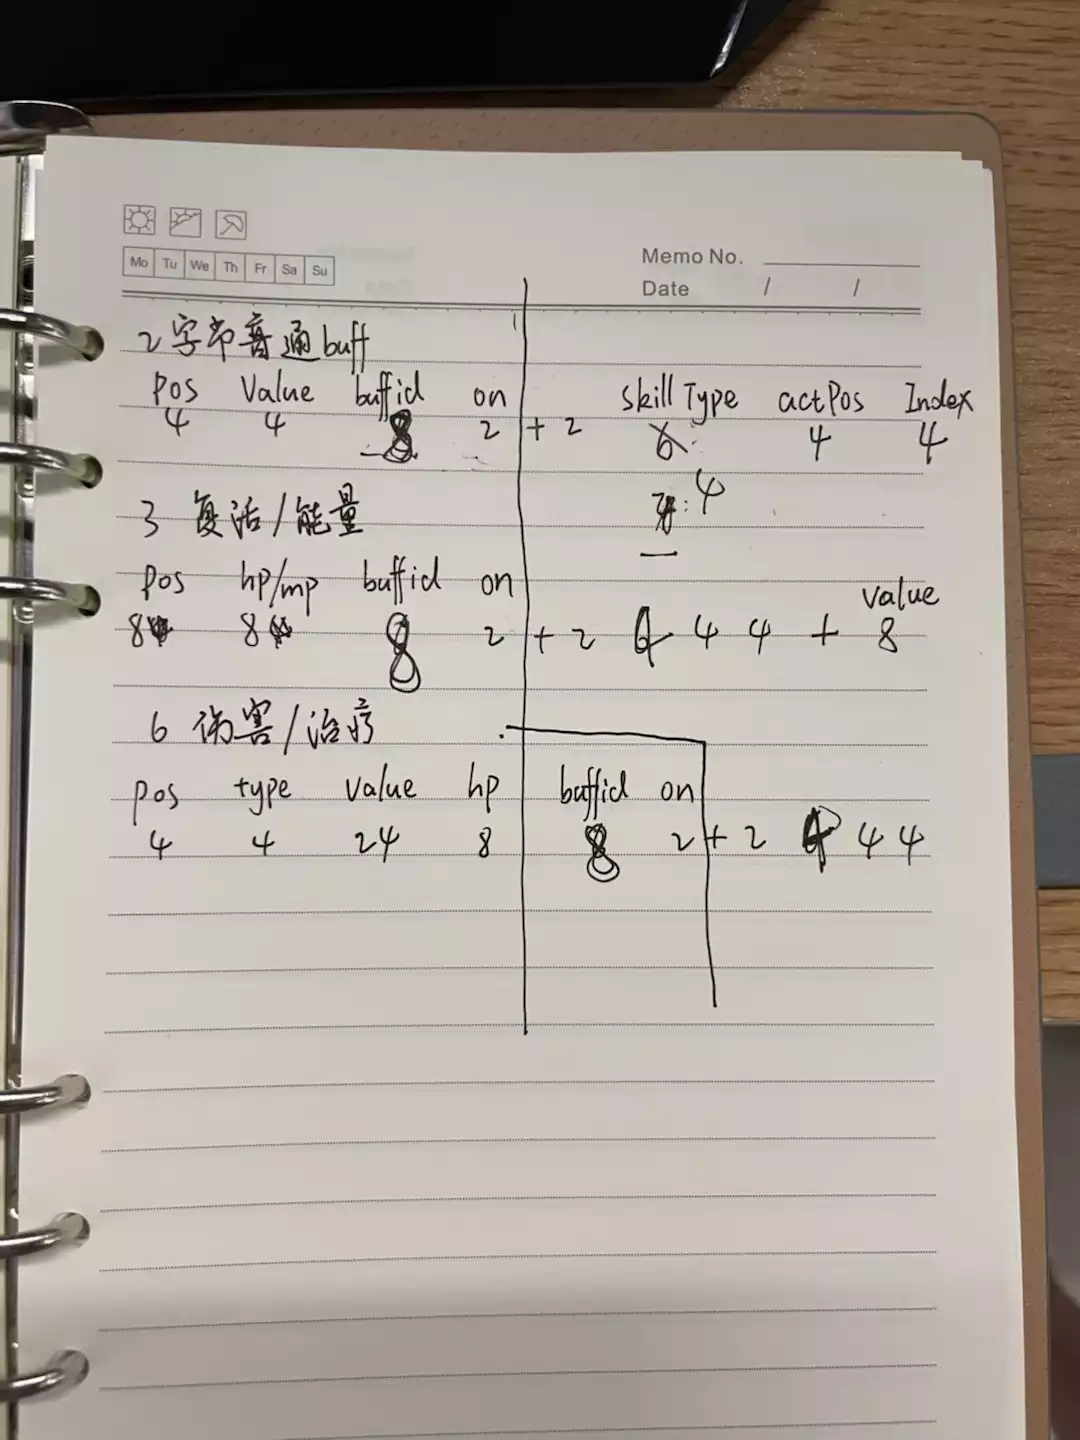 Mo Tu We Th Fr Sa Su
Memo No.
Date / /
2字节普通buff
pos value buffid on skillType actPos Index
4 4 8 2 + 2 4 4
4
3 复活/能量
pos hp/mp buffid on value
8 8 8 2 + 2 4 4 + 8
6 伤害/治疗
pos type value hp buffid on
4 4 24 8 8 2 + 2 4 4 4